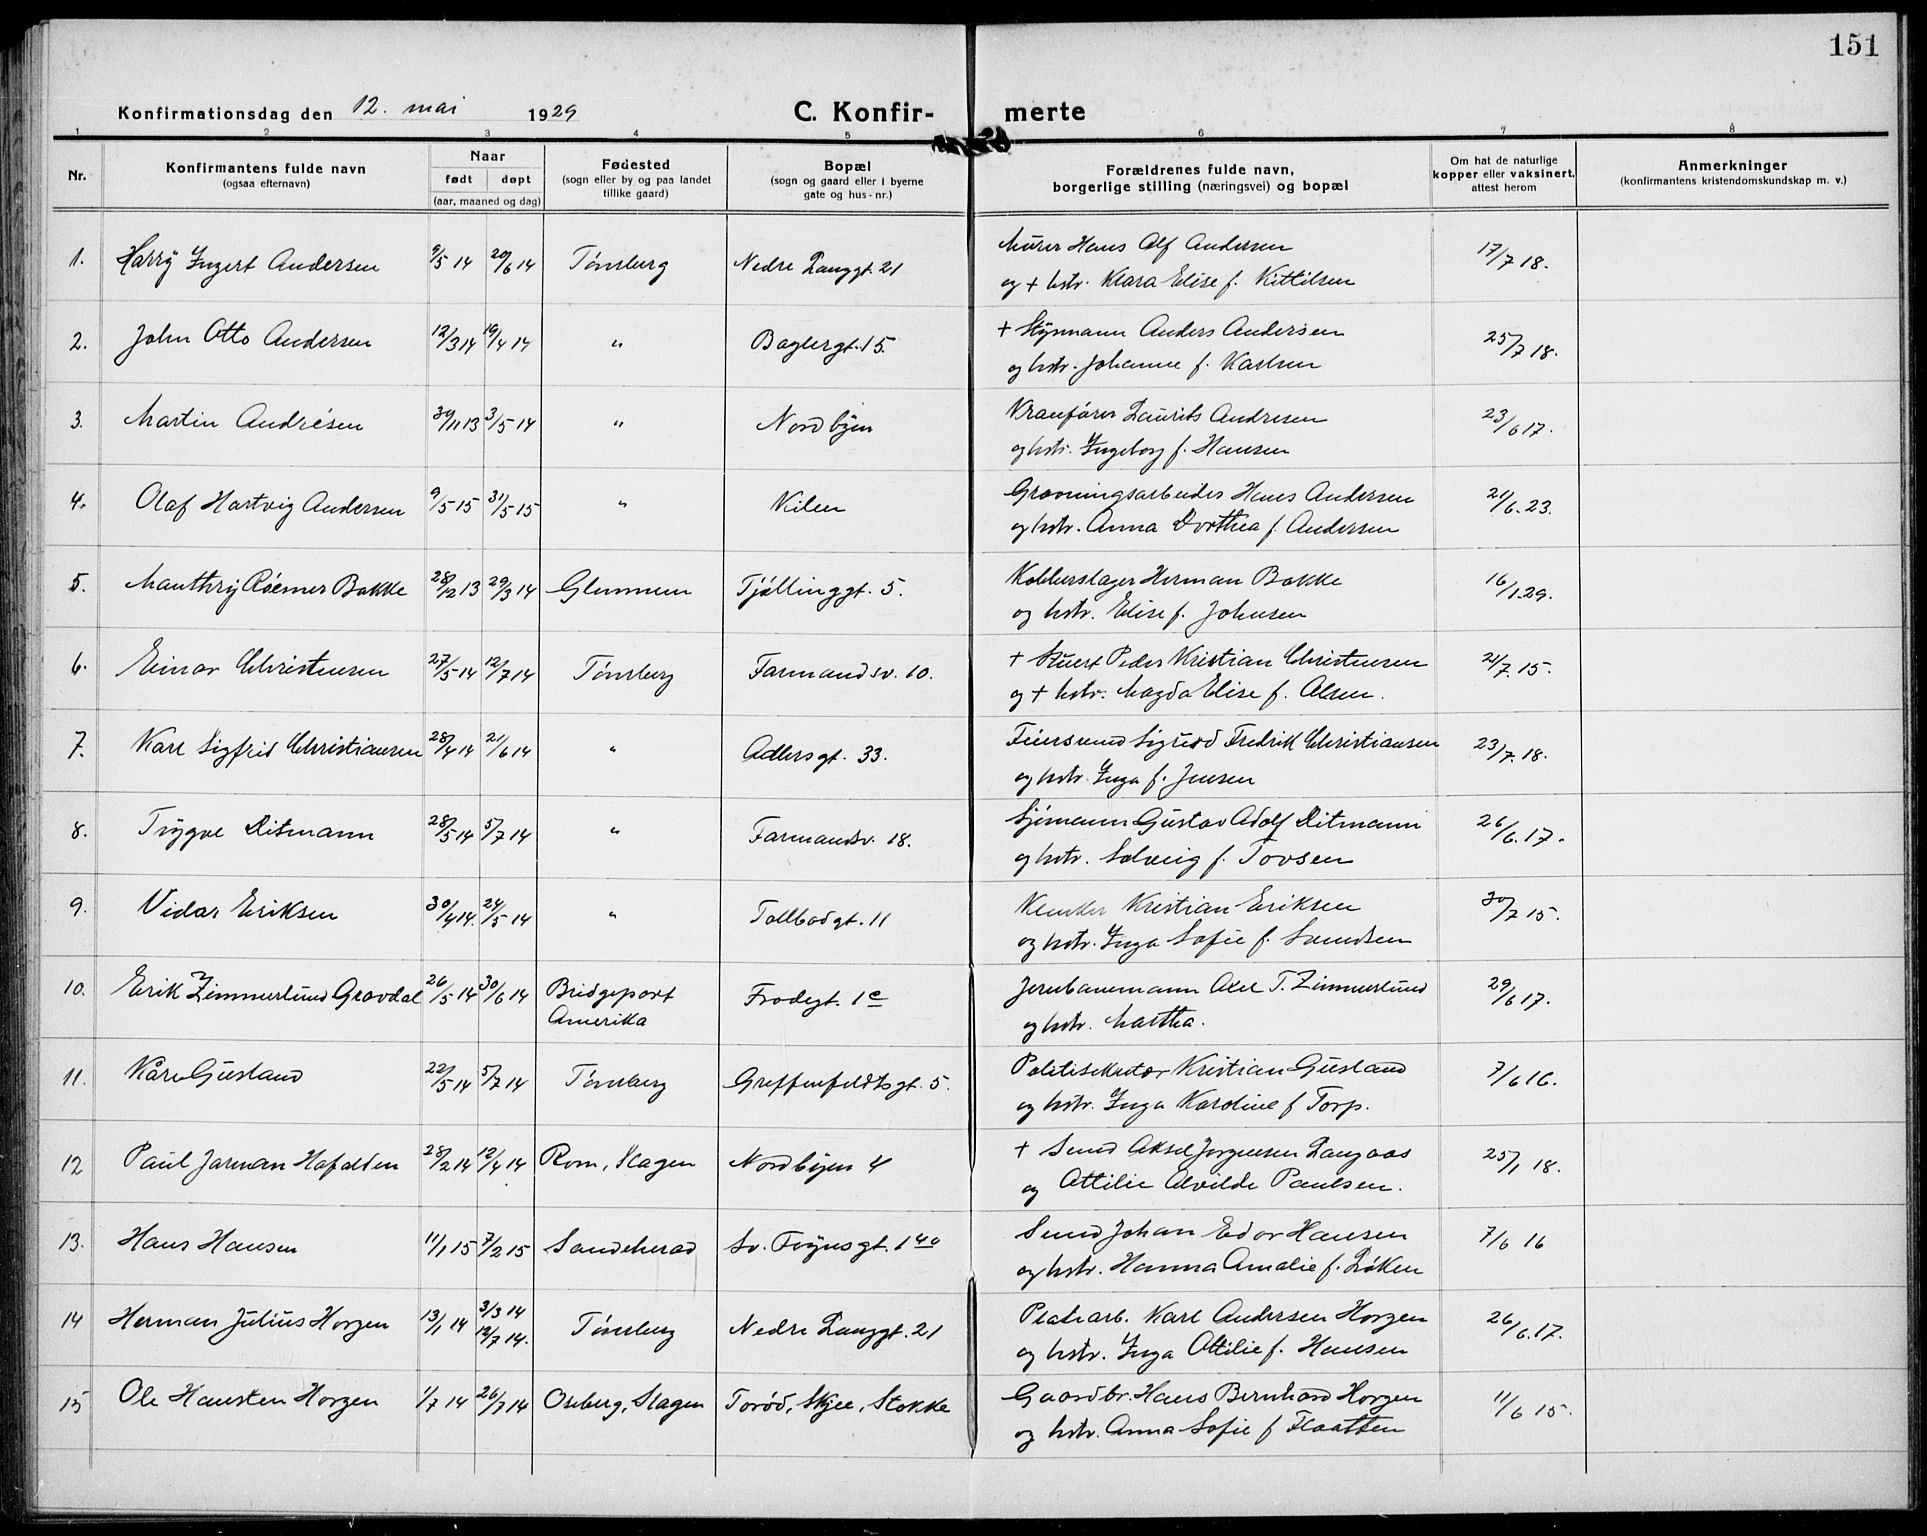 151
Konfirmationsdag den 12. mai 1929 C. Konfir- merte
1 2 3 4 5 6 7 8
Nr. Konfirmantens fulde navn (ogsaa efternavn) Naar født døpt (aar, maaned og dag) Fødested (sogn eller by og paa landet tillike gaard) Bopæl (sogn og gaard eller i byerne gate og hus-nr.) Forældrenes fulde navn, borgerlige stilling (næringsvei) og bopæl Om hat de naturlige kopper eller vaksinert, attest herom Anmerkninger (konfirmantens kristendomskundskap m. v.)
1. Harry Ingert Andersen 9/5 14 20/6 14 Tønsberg Nedre Langgt. 21 Murer Hans Alf Andersen 17/7 18.
og + hstr. Klara Elise f. Kittilsen
2. John Otto Andersen 12/3 14 19/4 14 " Baglergt. 15. + Styrmann Anders Andersen 25/7 18.
og hstr. Johanne f. Karlsen
3. Martin Andrésen 30/11 13 3/5 14 " Nordbyen Kranfører Laurits Andresen 23/6 17.
og hstr. Ingeborg f. Hansen
4. Olaf Hartvig Andersen 9/5 15 31/5 15 " Kilen Gravningsarbeider Hans Andersen 21/6. 23.
og hstr. Anna Dorthea f. Andersen
5. Manthry Róemer Bakke 28/12 13 29/3 14 Glemmen Tjøllinggt. 5. Kobberslager Herman Bakke 16/1. 29.
og hstr. Elise f. Johnsen
6. Einar Christensen 27/5 14 12/7 14 Tønsberg Farmandsv. 10. + Stuert Peder Kristian Christensen 21/7. 15.
og + hstr. Magda Elise f. Olsen.
7. Karl Sigfrid Christiansen 28/4 14 21/6 14 " Adlersgt. 33. Feiersvend Sigurd Fredrik Christiansen 23/7. 18.
og hstr. Inga f. Jensen
8. Trygve Ditmann 28/5 14 5/7 14 " Farmandsv. 18. Sjømann Gustav Adolf Ditmann 26/6. 17.
og hstr. Solveig f. Tovsen
9. Vidar Eriksen 30/4 14. 24/5 14 " Tollbodgt. 11 Kristian Eriksen 30/7 15.
og hstr. Inga Sofie f. Svendsen
10. Erik Zimmerlund Gravdal 26/5 14 30/6 14 Bridgeport Frodegt. 1c Jernbanemann Axel T. Zimmerlund 29/6 17.
Amerika og hstr. Martha.
11. Kåre Gusland 22/5 14 5/7 14 Tønsberg Greffenfeldtsgt. 5. Politisekretær Kristian Gusland 7/6 16.
og hstr. Inga Karoline f Torp.
12 Paul Jarman Hafalten 28/2 14 12/4 14 Rom, Slagen Nordbyen 4 + Smed Aksel Jørgensen Langaas 25/1 18.
og Ottilie Alvilde Paulsen.
13. Hans Hansen 11/1 15 7/2 15 Sandeherad Sv. Foynsgt. 14a Smed Johan Edor Hansen 7/6 16
og hstr. Hanna Amalie f. Løken
14 Herman Julius Horgen 13/1 14 3/3 14 12/7 14. Tønsberg Nedre Langgt. 21 Platearb. Karl Andersen Horgen 26/6. 17.
og hstr. Inga Ottilie f. Hansen
15 Ole Hansten Horgen 1/7 14 26/7 14 Oseberg, Slagen Torød, Skjee, Stokke Gaardbr. Hans Bernhard Horgen 11/6 15.
og hstr. Anna Sofie f Flaatten